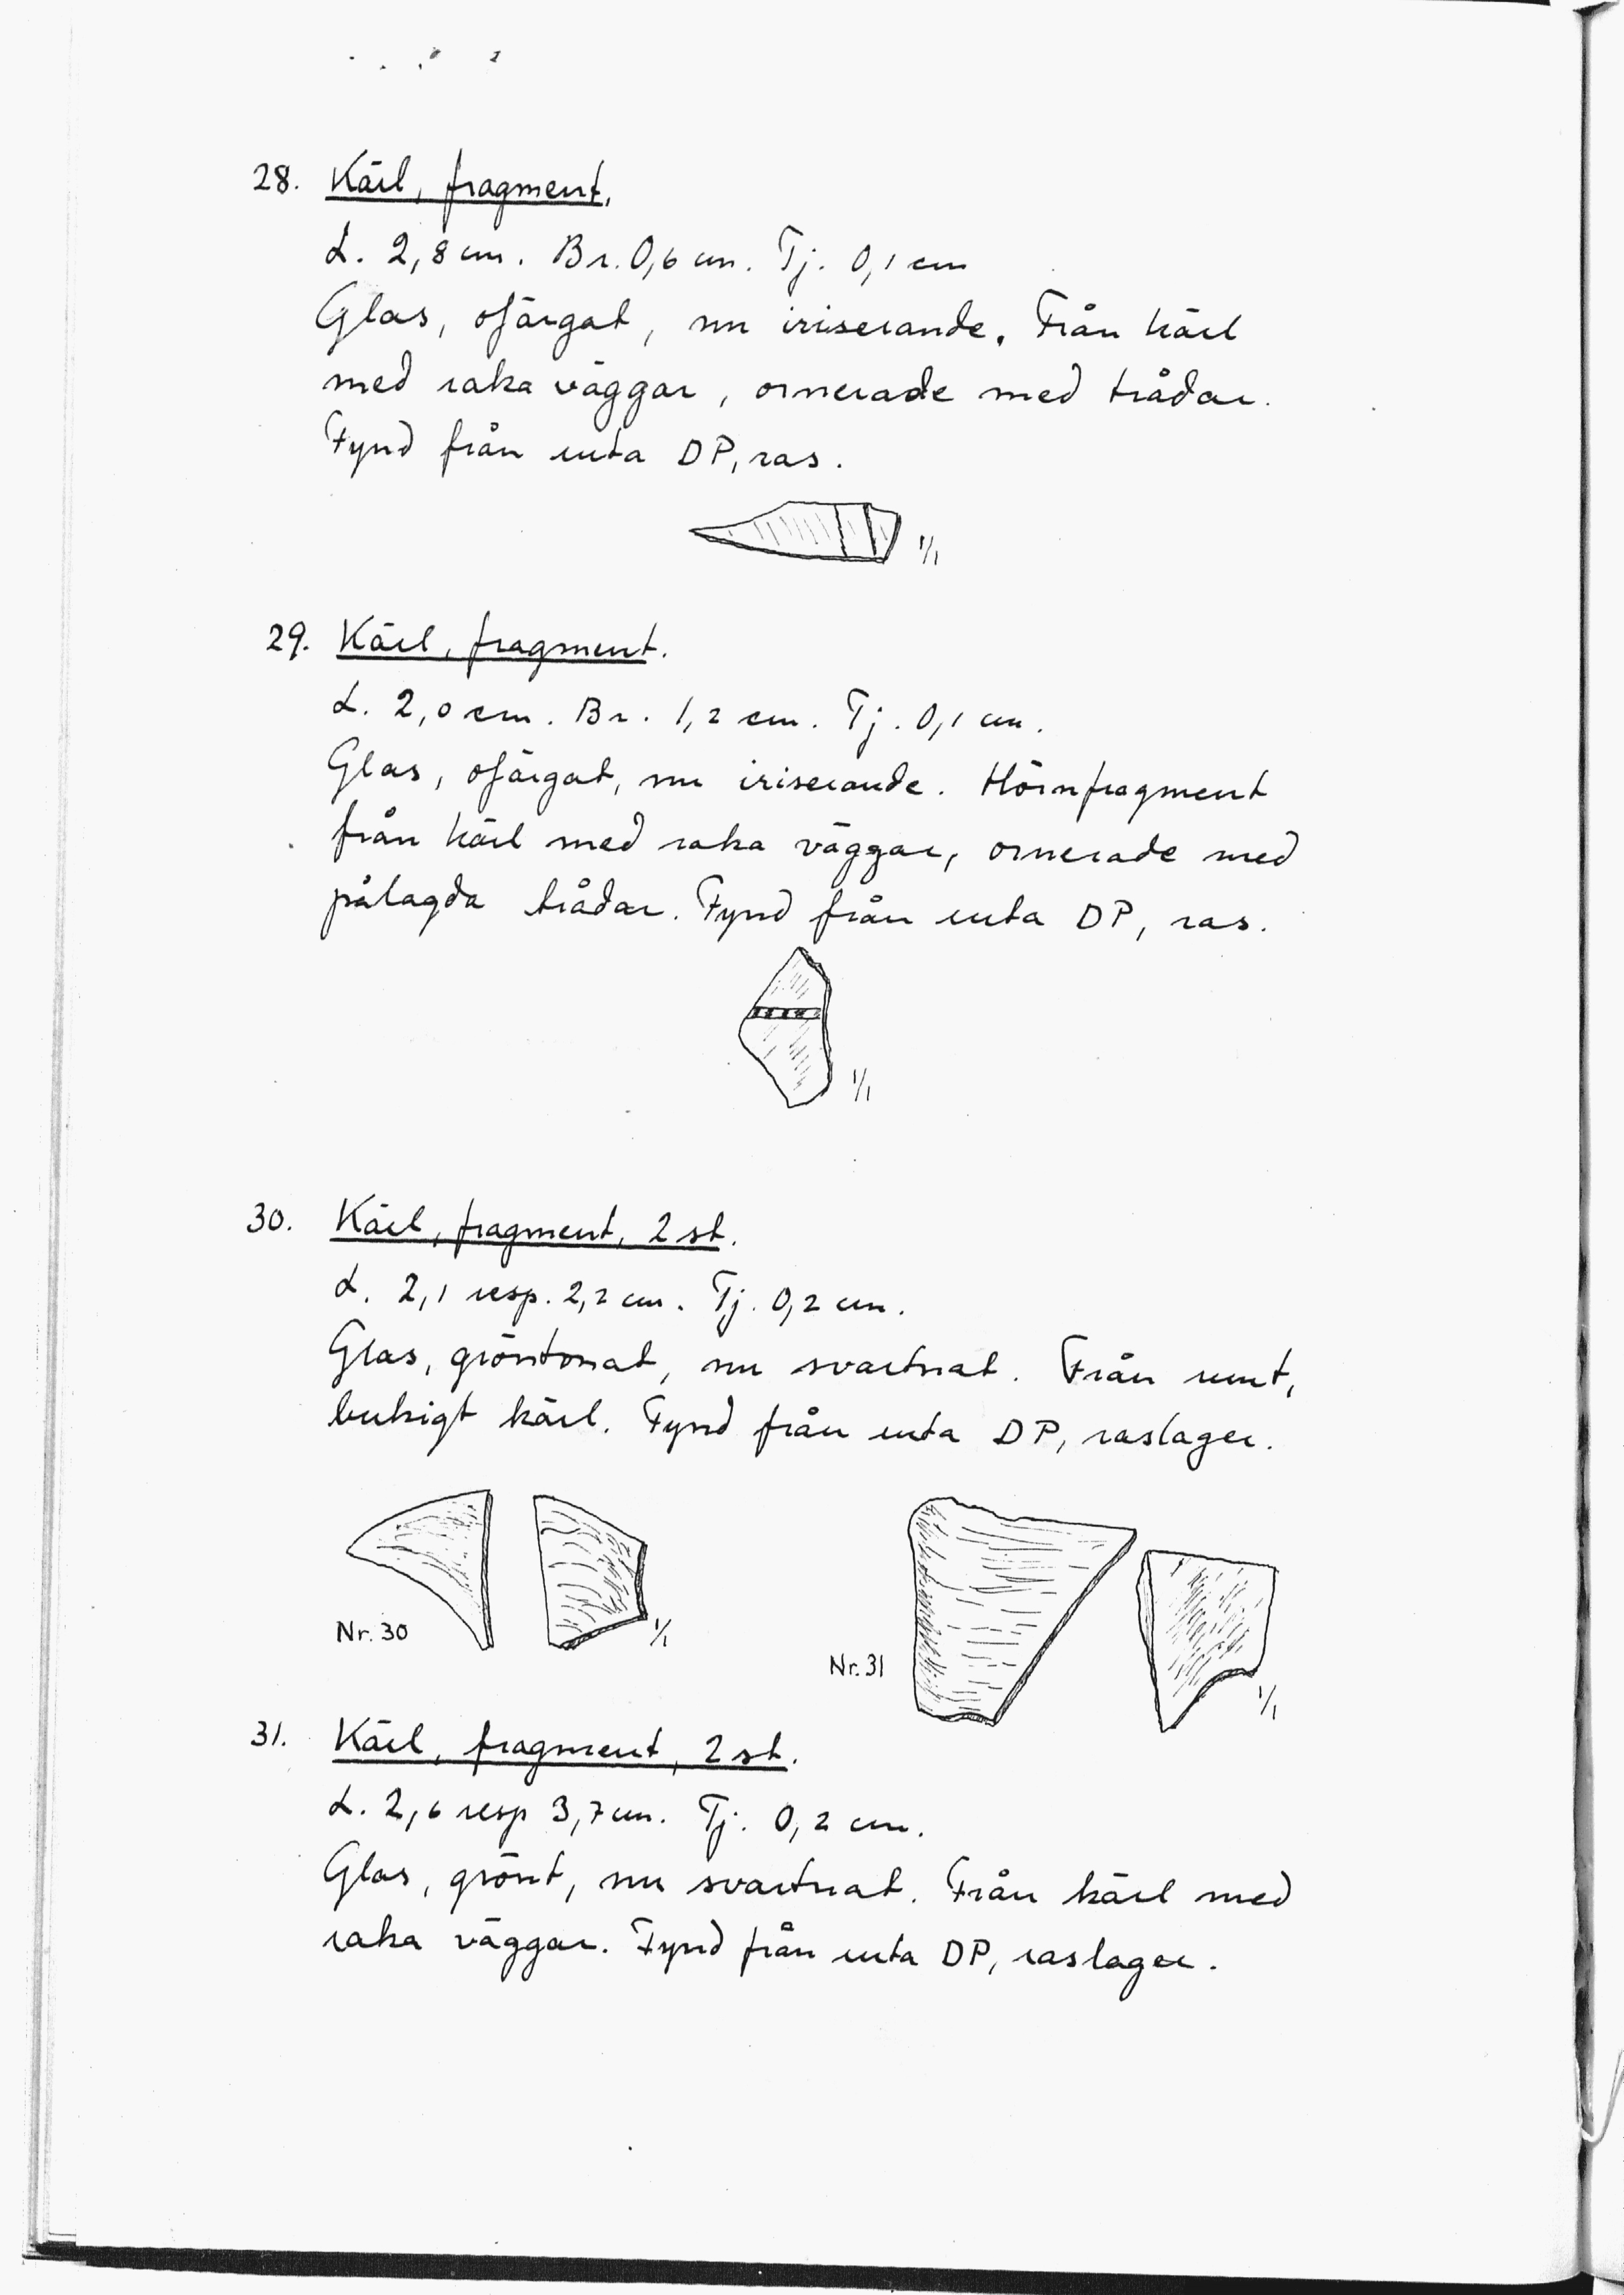 28. Kärl, fragment.
L. 2,8 cm. Br. 0,6 cm. Tj. 0,1 cm
Glas, ofärgat, nu iriserande. Från kärl
med raka väggar, ornerade med trådar.
Fynd från ruta DP, ras.
1/1
29. Kärl, fragment.
L. 2,0 cm. Br. 1,2 cm. Tj. 0,1 cm.
Glas, ofärgat, nu iriserande. Hörnfragment
från kärl med raka väggar, ornerade med
pålagda trådar. Fynd från ruta DP, ras.
1/1
30. Kärl, fragment, 2 st.
L. 2,1 resp. 2,2 cm. Tj. 0,2 cm.
Glas, gröntonat, nu svartnat. Från runt,
bukigt kärl. Fynd från ruta DP, raslager.
Nr. 30 1/1
Nr. 31 1/1
31. Kärl, fragment, 2 st.
L. 2,6 resp 3,7 cm. Tj. 0,2 cm.
Glas, grönt, nu svartnat. Från kärl med
raka väggar. Fynd från ruta DP, raslager.